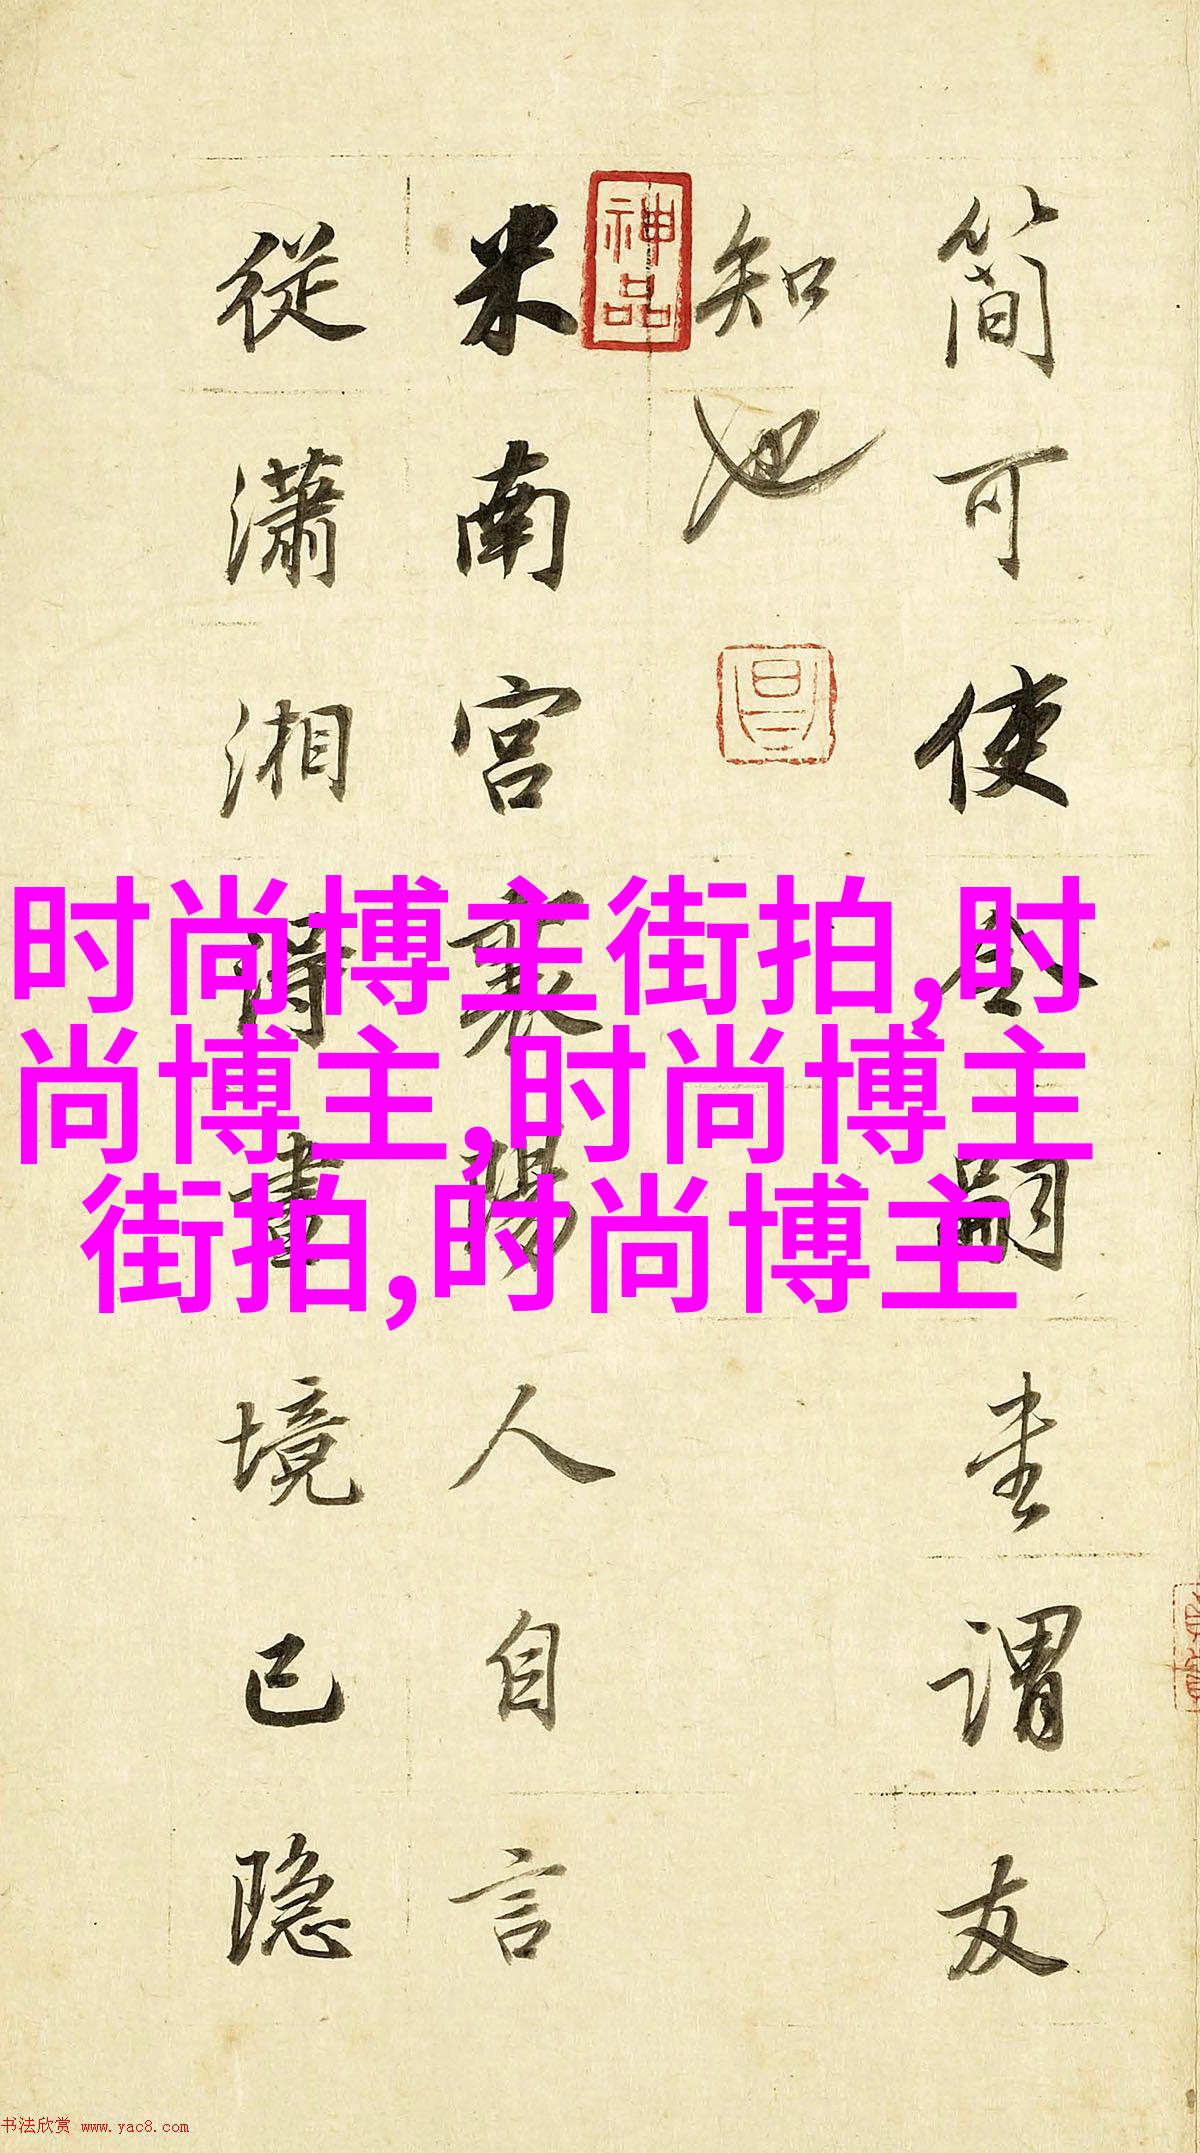 簡可使令嗣畫謂友
知也
米南宮襄陽人自言
從瀟湘得畫境已隐
神品
时尚博主街拍,时
尚博主,时尚博主
街拍,时尚博主
书法欣赏 www.yac8.com